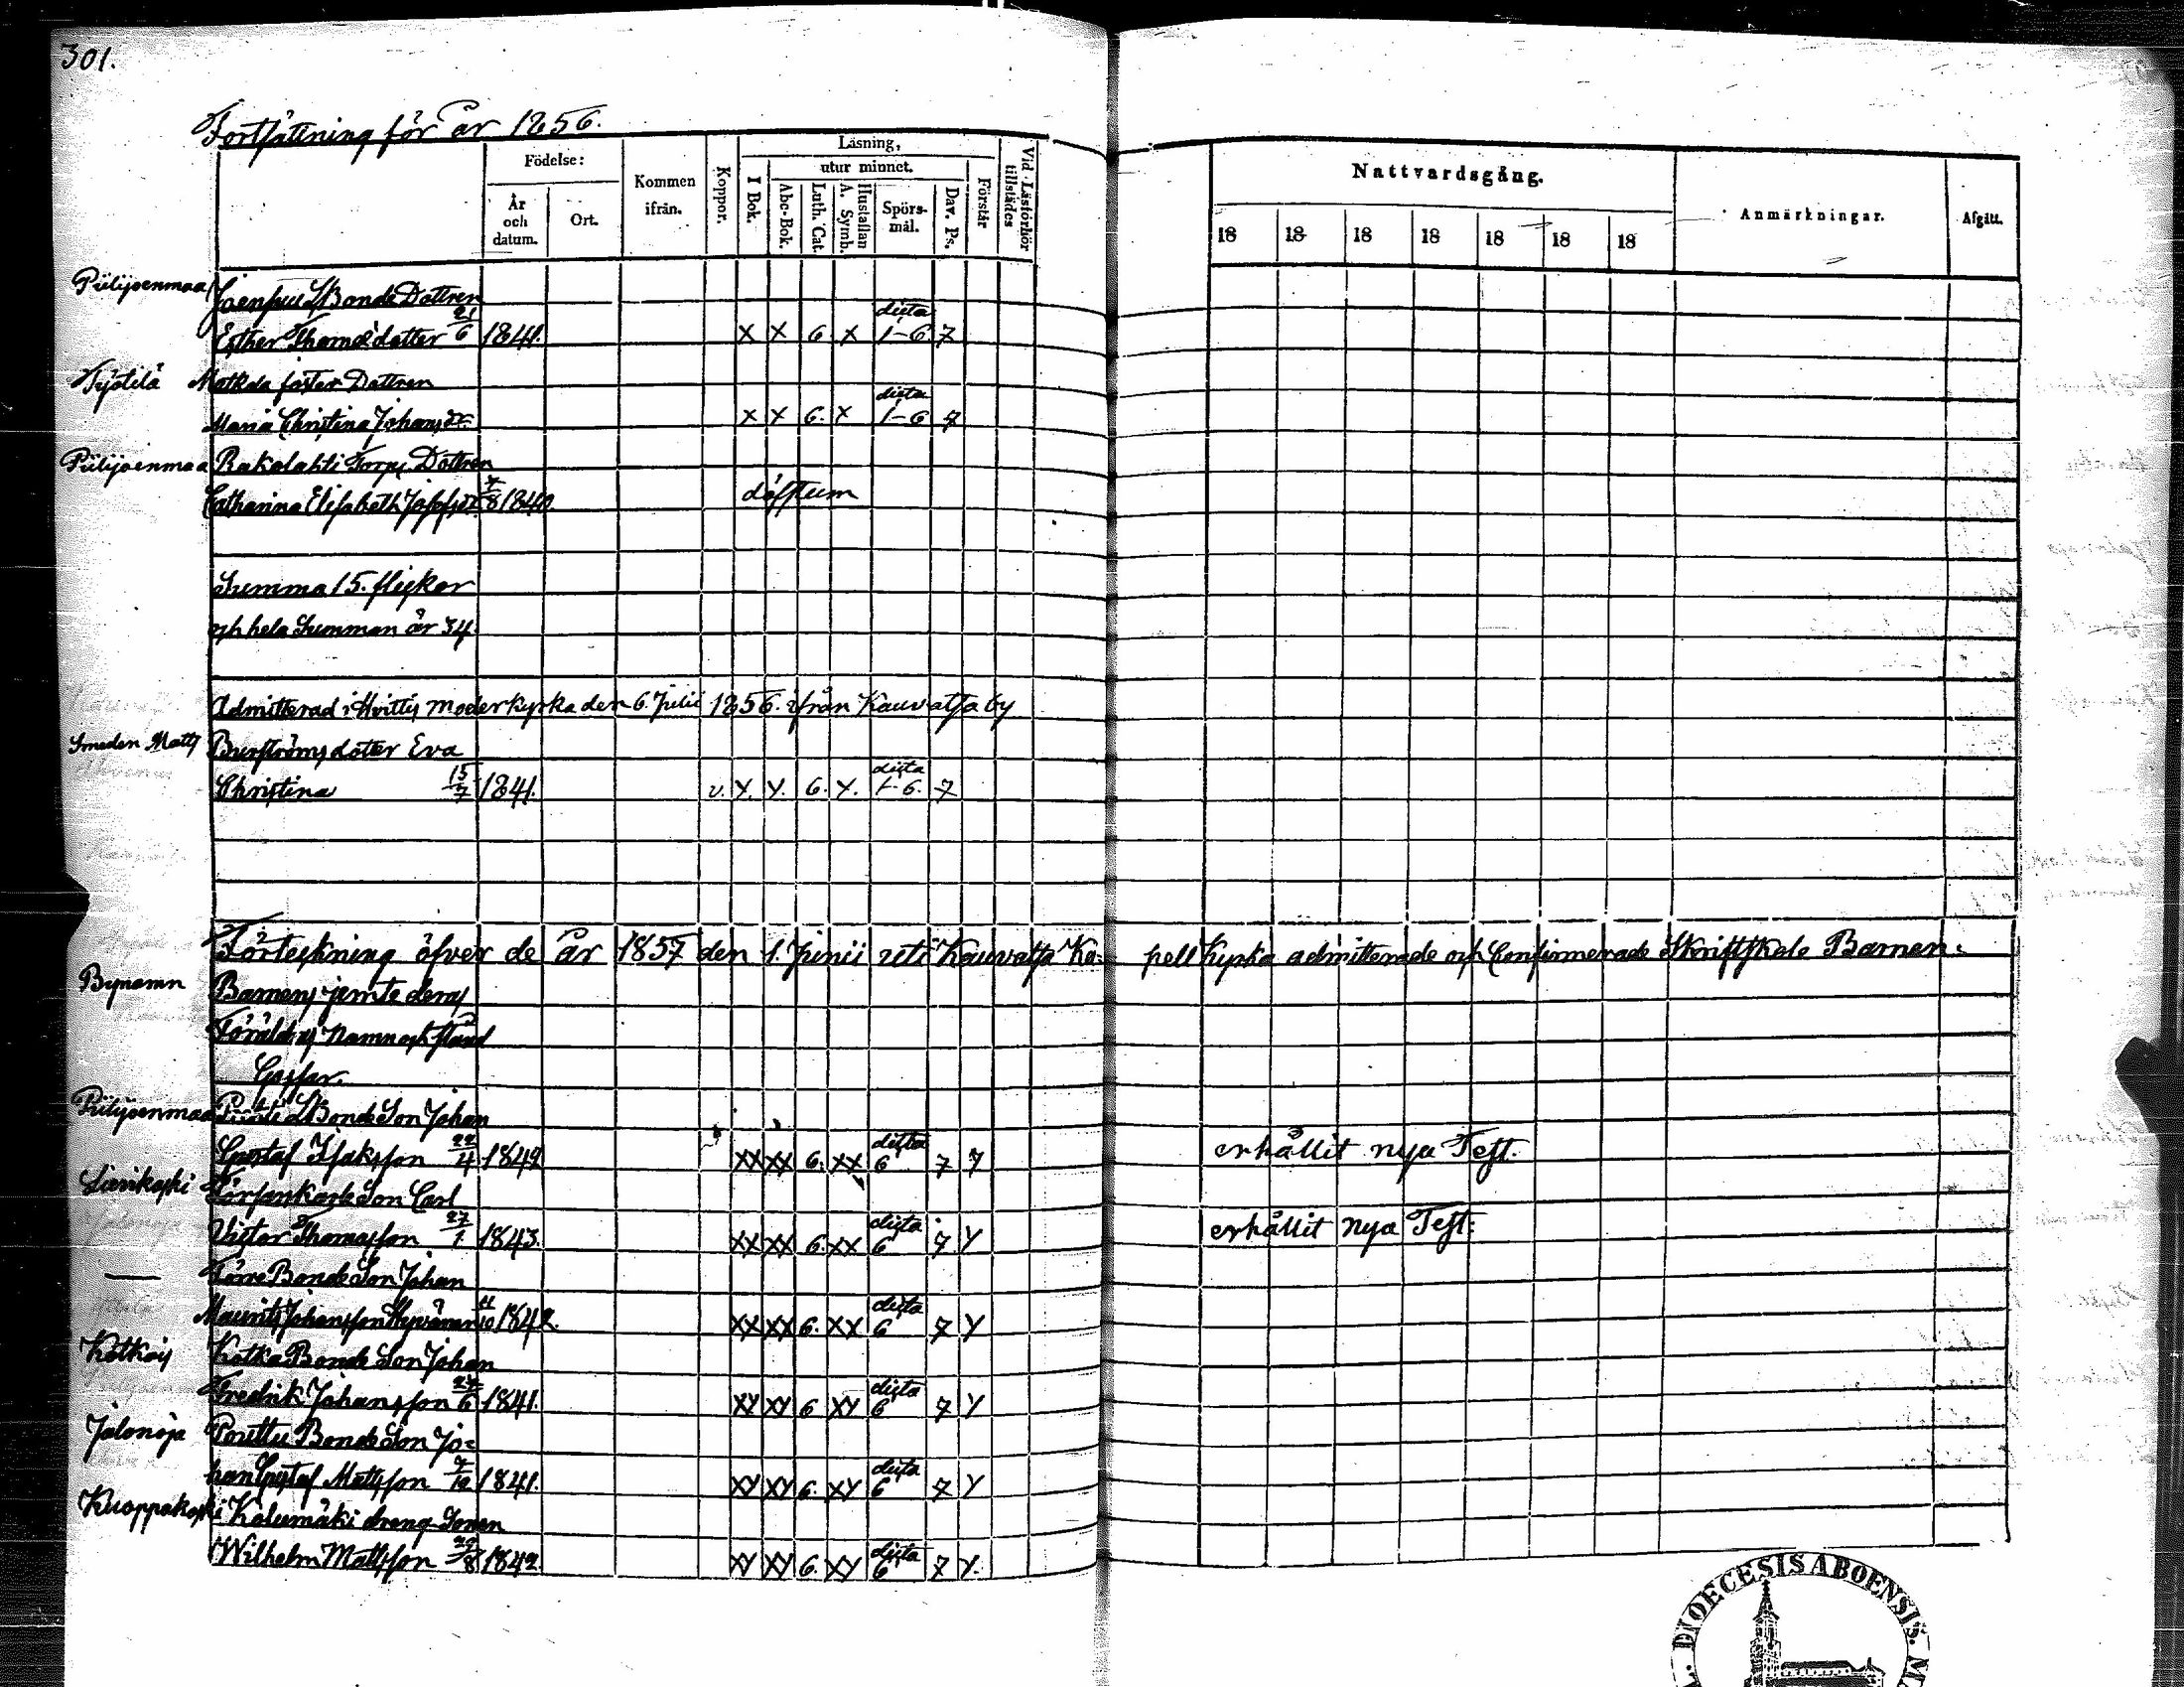 301.
Fortsättning för år 1856.
Födelse:
År och datum.
Ort.
Kommen ifrån.
Koppor.
Läsning,
utur minnet.
I Bok.
Abc-Bok.
Luth. Cat.
Hustaflan A. Symb.
Spörs-mål.
Dav. Ps.
Förstår
Vid Läsförhör tillstädes
Nattvardsgång.
18 18 18 18 18 18 18
Anmärkningar.
Afgått.
Piilijoenmaa Bonde Dottren
Esther Thomædotter 21/6 1841. x x 6 x dicta 1-6. 7
Työtilä foster Dottren
Maria Christina Johansdr x x 6. x dicta 1-6 7
Piilijoenmaa Torps Dottren
Catharina Elisabeth 7/8 1840 döfstum
Summa 15. flickor
och hela Summan är 34.
Admitterad i Hvittis moderkyrka den 6. Julii 1856. ifrån Kauvatsa by
Smeden Matts Burströms doter Eva
Christina 15/7 1841. v. x. x. 6. x. dicta 1-6. 7
Förteckning öfver de år 1857 den 1. Junii uti Kauvatsa Ka- pell Kyrka admitterade och Confirmerade Skriftskole Barnen.
Bynamn Barnens jemte deras
Föräldrars Namn och stånd
Gossar.
Piilijoenmaa Bonde Son Johan
Gustaf Isaksson 22/4 1842 xx xx 6. xx dicta 6 7 y erhållit nya Test.
Lievikoski Son Carl
Victor Thomasson 27/1 1843. xx xx 6. xx dicta 6 7 y erhållit nya Test:
— Bonde Son Johan
Maurits Johansson 11/10 1842. xx xx 6. xx dicta 6 7 y
Kotka Bonde Son Johan
Fredrik Johansson 27/6 1841. xy xy 6 xy dicta 6 7 y
Jalonoja Pouttu Bonde Son Jo-
han Gustaf Mattsson 1841. xy xy 6. xy dicta 6 7 y
Kuoppakoski Kalumäki dreng Sonen
Wilhelm Mattsson 1842. xy xy 6. xy dicta 6 7 y.
DIOECESIS ABOENSIS.